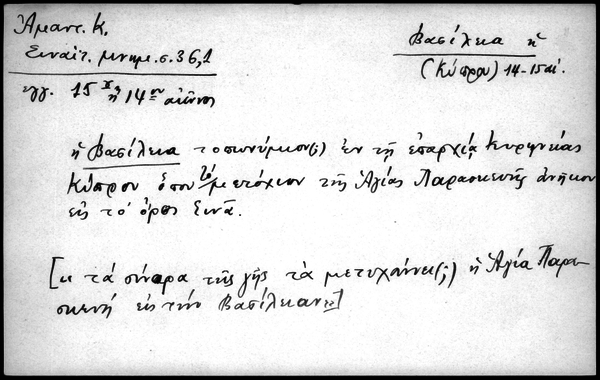 Ἄμαντ. Κ.
Σιναϊτ. μνημ. σ. 36,1
ἔγγ. 15 ἢ 14ου αἰῶνος
Βασίλεια ἡ
(Κύπρου) 14-15 αἰ.
ἡ Βασίλεια τοπωνύμιον(;) ἐν τῇ ἐπαρχίᾳ Κυρηνείας
Κύπρου ὅπου τό μετόχιον τῆς Ἁγίας Παρασκευῆς ἀνῆκον
εἰς τό ὄρος Σινᾶ.
[κ τά σύνορα τῆς γῆς τά (;) ἡ Ἁγία Παρα-
σκευή εἰς τήν Βασίλειαν]